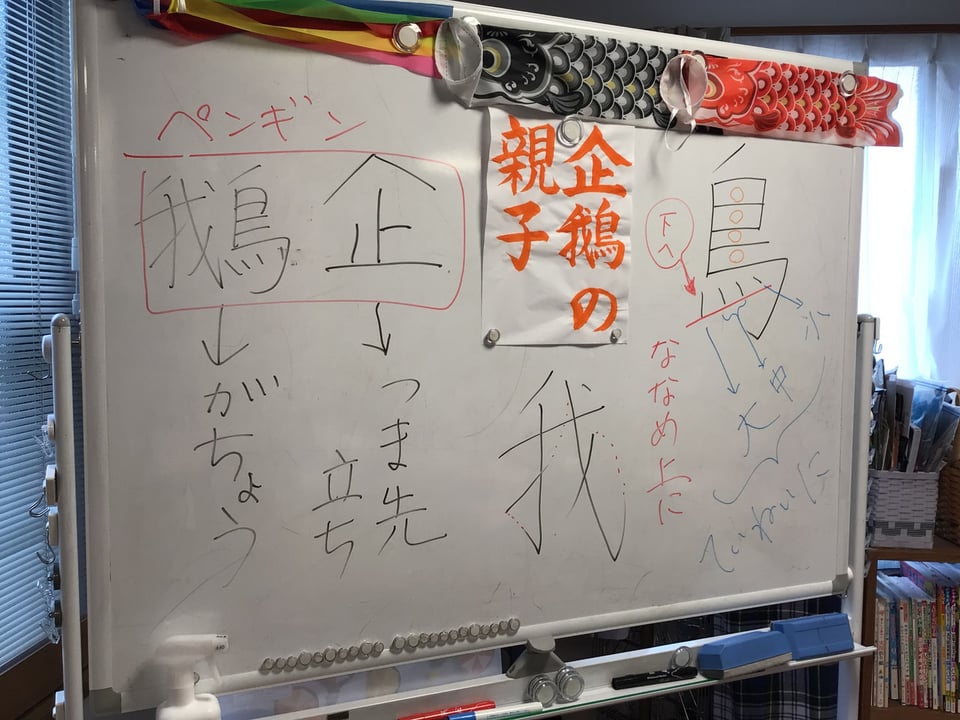 ペンギン
企鵝
つま先
立ち
がちょう
企鵝の
親子
我
鳥
下へ
ななめ上に
小
中
大
ていねいに